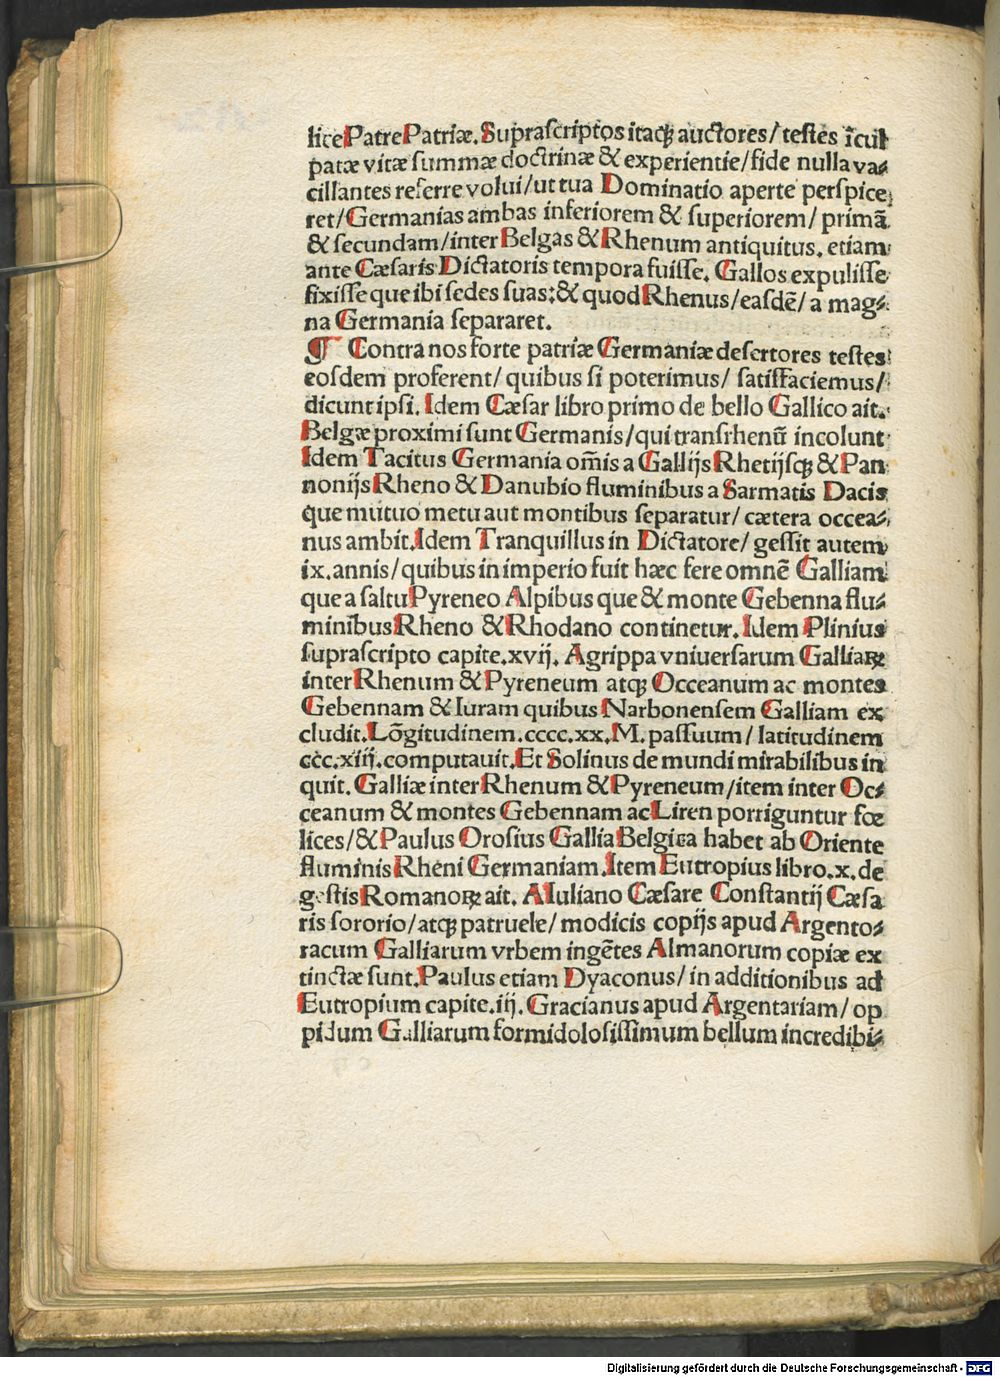 lice Patre Patriæ. Supraſcriptos itaqꝫ auctores/ teſtes ĩcul
patæ vitæ ſummæ doctrinæ & experientie/ fide nulla va⸗
cillantes referre volui/ ut tua Dominatio aperte perſpice
ret/ Germanias ambas inferiorem & ſuperiorem/ primã
& ſecundam/ inter Belgas & Rhenum antiquitus. etiam
ante Cæſaris Dictatoris tempora fuiſſe. Gallos expuliſſe
fixiſſe que ibi ſedes ſuas: & quod Rhenus/ eaſdẽ/ a mag⸗
na Germania ſepararet.
¶ Contra nos forte patriæ Germaniæ deſertores teſtes
eoſdem proferent/ quibus ſi poterimus/ ſatiſfaciemus/
dicunt ipſi. Idem Cæſar libro primo de bello Gallico ait.
Belgæ proximi ſunt Germanis/ qui tranſrhenũ incolunt
Idem Tacitus Germania om̃is a Gallijs Rhetijſqꝫ & Pan
nonijs Rheno & Danubio fluminibus a Sarmatis Dacis
que mutuo metu aut montibus ſeparatur/ cætera occea⸗
nus ambit. Idem Tranquillus in Dictatore/ geſſit autem
ix. annis/ quibus in imperio fuit hæc fere omnẽ Galliam
que a ſaltu Pyreneo Alpibus que & monte Gebenna flu⸗
minibus Rheno & Rhodano continetur. Idem Plinius
ſupraſcripto capite. xvij. Agrippa vniuerſarum Galliaꝝ
inter Rhenum & Pyreneum atqꝫ Occeanum ac montes
Gebennam & Iuram quibus Narbonenſem Galliam ex
cludit. Lõgitudinem. cccc. xx. M. paſſuum/ latitudinem
ccc. xiij. computauit. Et Solinus de mundi mirabilibus in
quit. Galliæ inter Rhenum & Pyreneum/ item inter Oc⸗
ceanum & montes Gebennam ac Liren porriguntur fœ
lices/ & Paulus Oroſius Gallia Belgica habet ab Oriente
fluminis Rheni Germaniam. Item Eutropius libro. x. de
geſtis Romanoꝝ ait. A Iuliano Cæſare Conſtantij Cæſa
ris ſororio/ atqꝫ patruele/ modicis copijs apud Argento⸗
racum Galliarum vrbem ingẽtes Almanorum copiæ ex
tinctæ ſunt. Paulus etiam Dyaconus/ in additionibus ad
Eutropium capite. iij. Gracianus apud Argentariam/ op
pidum Galliarum formidoloſiſſimum bellum incredibi⸗
Digitalisierung gefördert durch die Deutsche Forschungsgemeinschaft - DFG